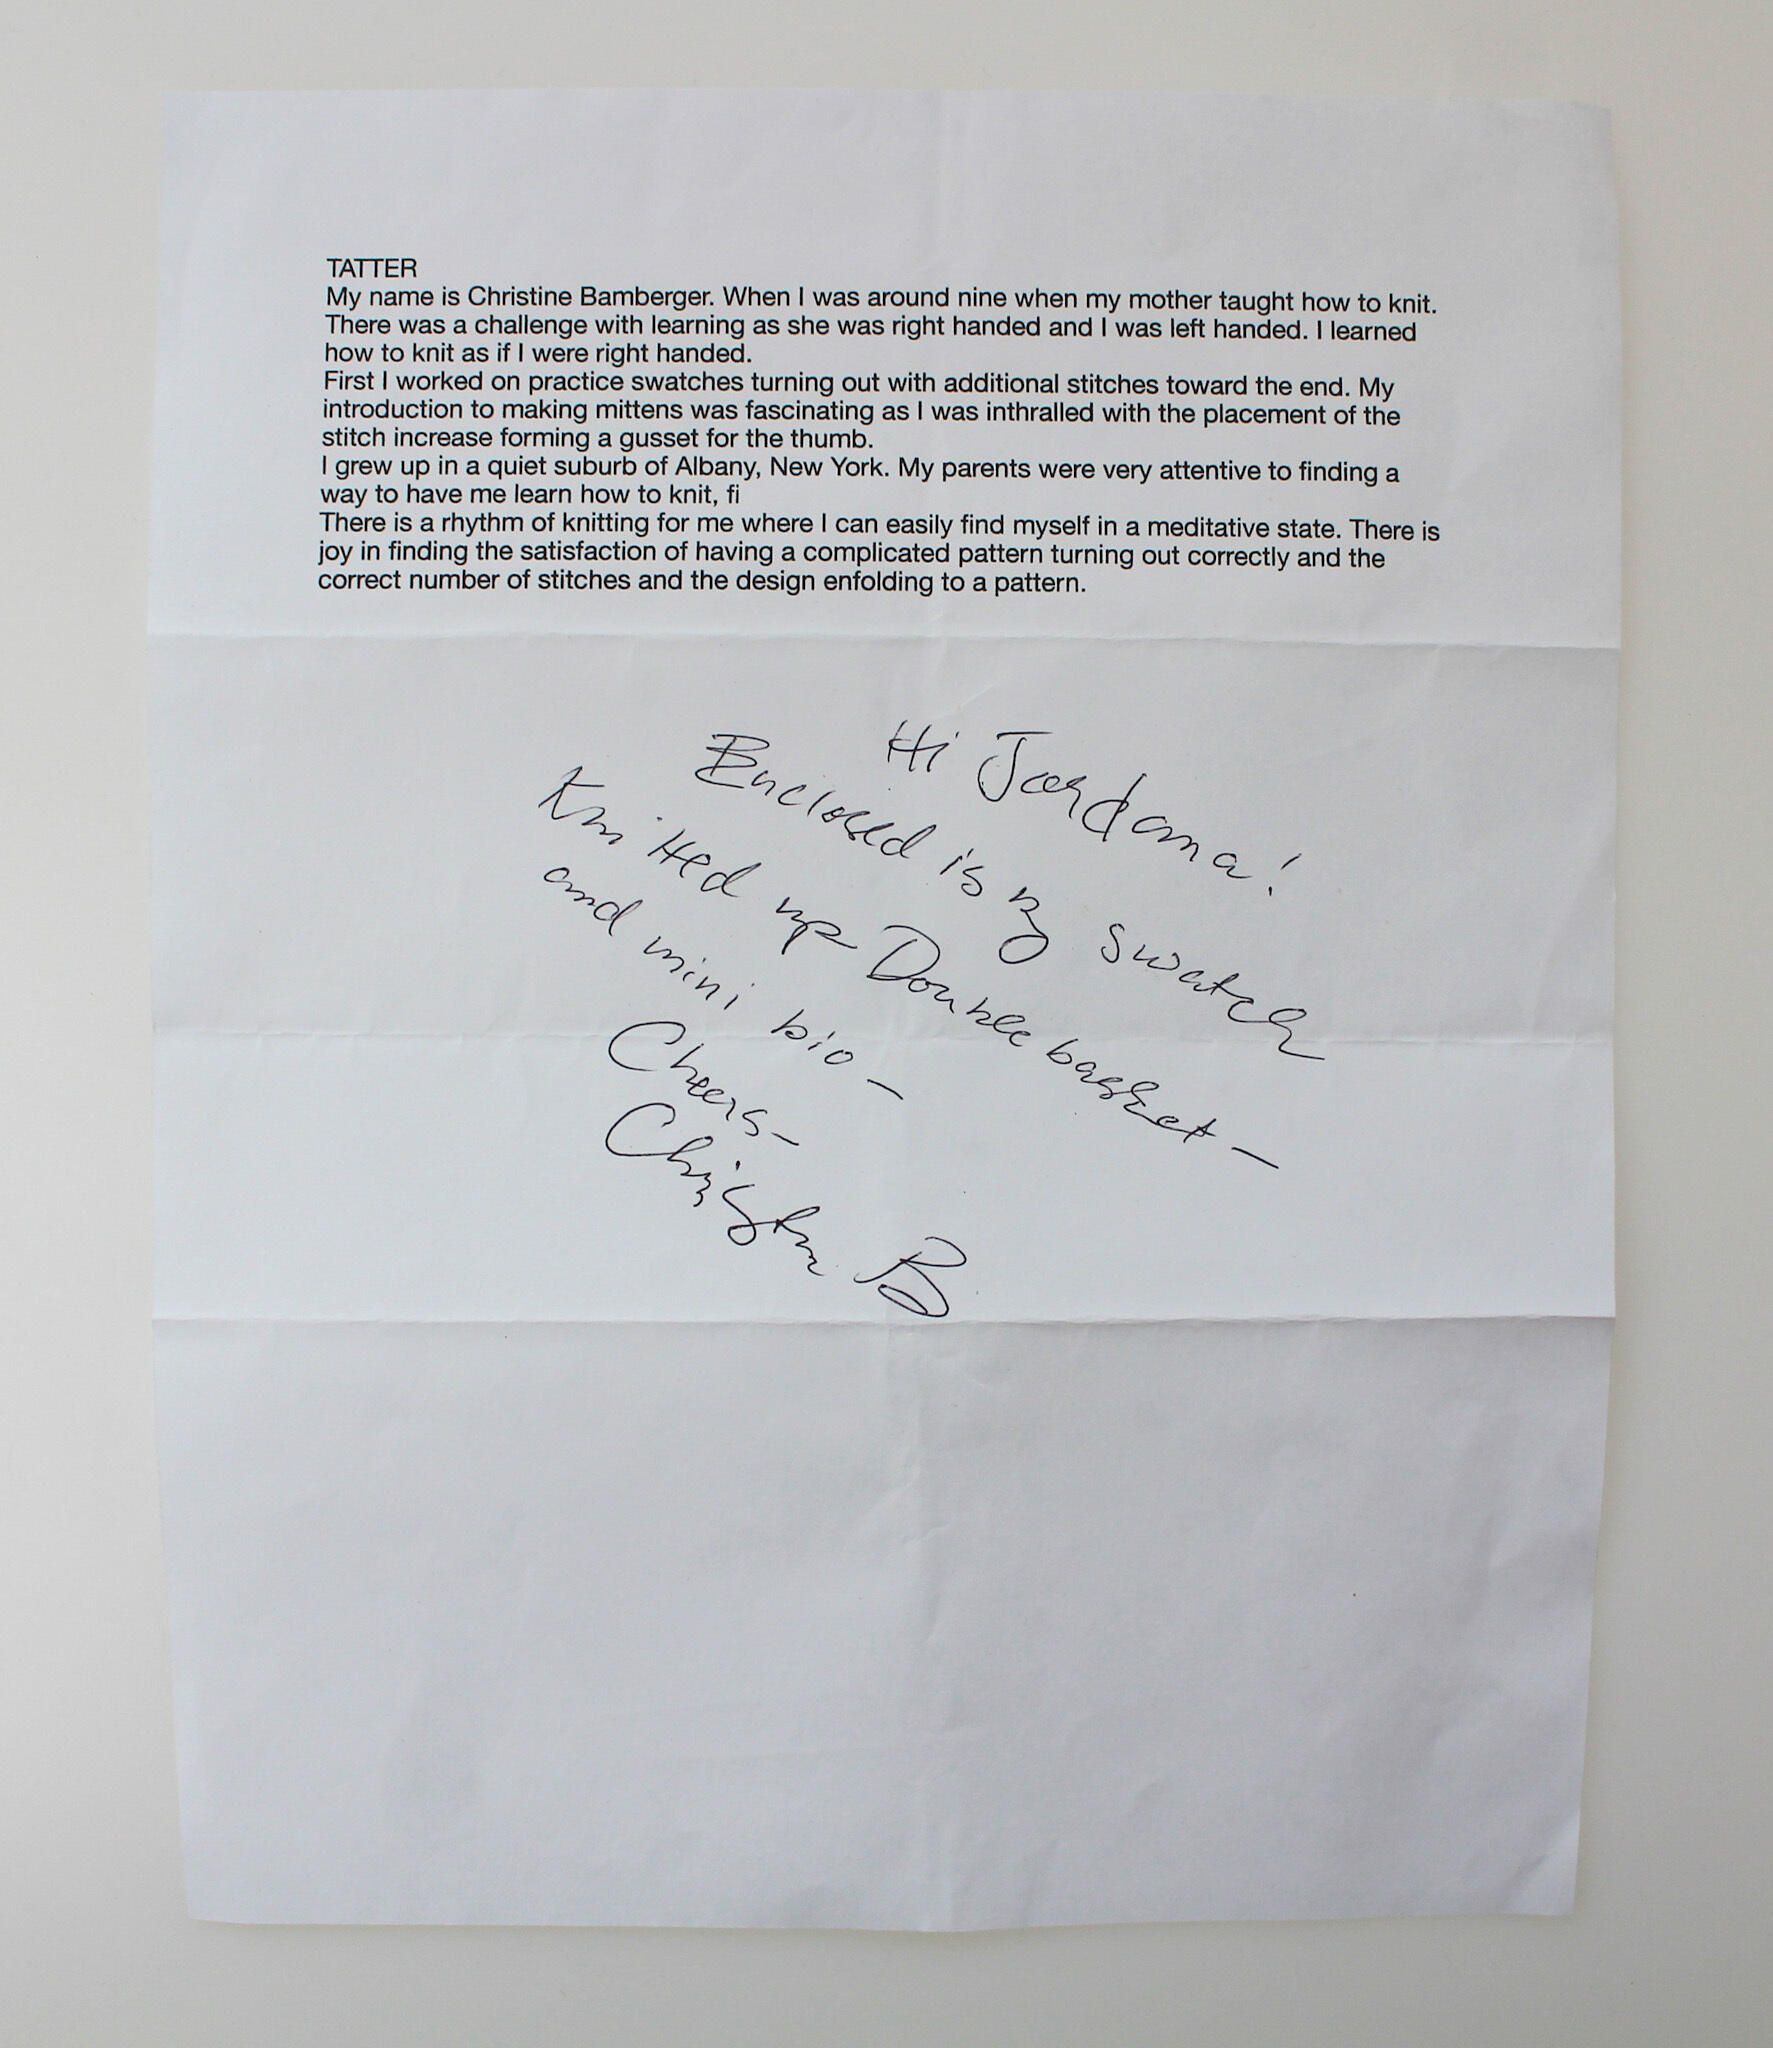 TATTER
My name is Christine Bamberger. When I was around nine when my mother taught how to knit.
There was a challenge with learning as she was right handed and I was left handed. I learned
how to knit as if I were right handed.
First I worked on practice swatches turning out with additional stitches toward the end. My
introduction to making mittens was fascinating as I was inthralled with the placement of the
stitch increase forming a gusset for the thumb.
I grew up in a quiet suburb of Albany, New York. My parents were very attentive to finding a
way to have me learn how to knit, fi
There is a rhythm of knitting for me where I can easily find myself in a meditative state. There is
joy in finding the satisfaction of having a complicated pattern turning out correctly and the
correct number of stitches and the design enfolding to a pattern.
Hi Jordana!
Enclosed is my swatch
Knitted up Double basket –
and mini bio –
Cheers –
Christine B